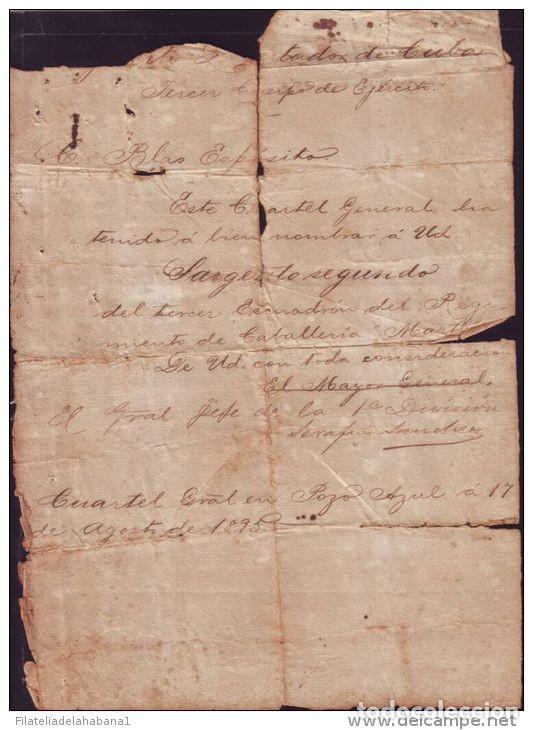 tador de Cuba
Tercer Cuerpo de Ejército.
C. Blas Espósito
Este Cuartel General ha
tenido á bien nombrar á Ud.
Sargento segundo
del tercer Escuadrón del Regi
miento de Caballería Martí
De Ud. con toda consideracio
El Mayor General,
El Gral Jefe de la 1ª División
Serafin Sanchez
Cuartel Gral en Pozo Azul á 17
de Agosto de 1895
Filateliadelahabana1
todocoleccion
www.todocoleccion.net